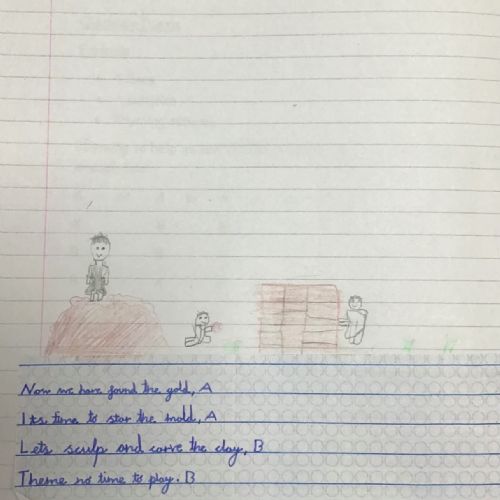 Now we have found the gold, A
Its time to star the mold, A
Lets sculp and carve the clay, B
Theme no time to play. B